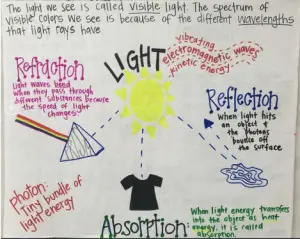 The light we see is called visible light. The spectrum of
visible colors we see is because of the different wavelengths
that light rays have
LIGHT
vibrating
electromagnetic waves
kinetic energy
Refraction
light waves bend
when they pass through
different substances because
the speed of light
changes
Reflection
When light hits
an object &
the photons
bounce off
the surface
Photon:
Tiny bundle of
light energy
Absorption
When light energy transfers
into the object as heat
energy, it is called
absorption.